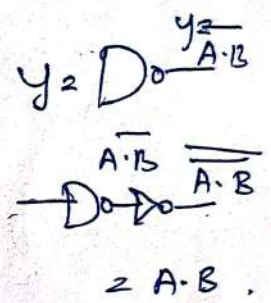 y = A̅·̅B̅
y =
A̅·̅B̅
A̿·̿B̿
= A·B.